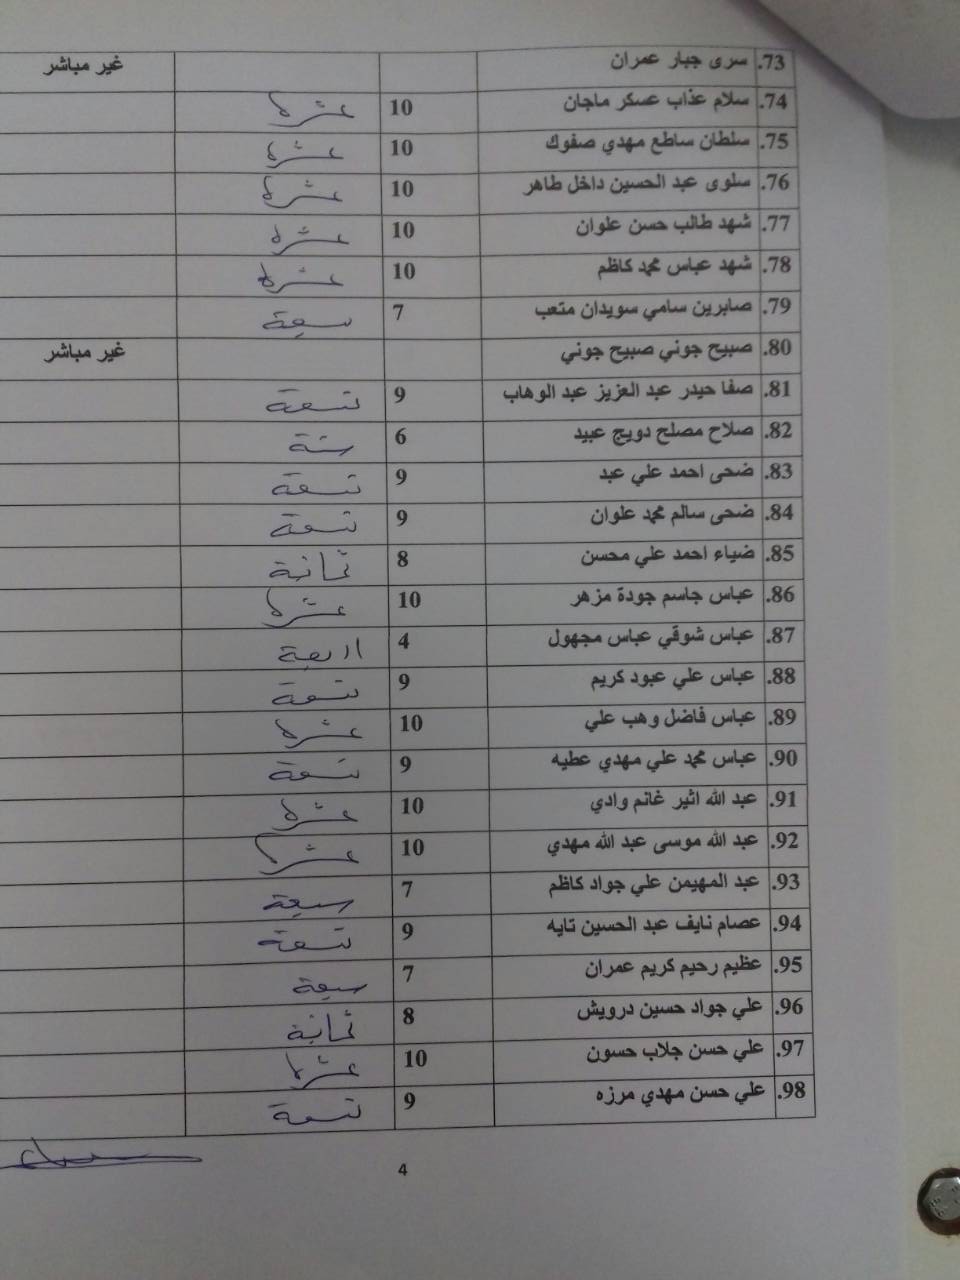 73. سرى جبار عمران غير مباشر
74. سلام عذاب عسكر ماجان 10 عشرة
75. سلطان ساطع مهدي صفوك 10 عشرة
76. سلوى عبد الحسين داخل طاهر 10 عشرة
77. شهد طالب حسن علوان 10 عشرة
78. شهد عباس محمد كاظم 10 عشرة
79. صابرين سامي سويدان متعب 7 سبعة
80. صبيح جوني صبيح جوني غير مباشر
81. صفا حيدر عبد العزيز عبد الوهاب 9 تسعة
82. صلاح مصلح دويج عبيد 6 ستة
83. ضحى احمد علي عبد 9 تسعة
84. ضحى سالم محمد علوان 9 تسعة
85. ضياء احمد علي محسن 8 ثمانية
86. عباس جاسم جودة مزهر 10 عشرة
87. عباس شوقي عباس مجهول 4 اربعة
88. عباس علي عبود كريم 9 تسعة
89. عباس فاضل وهب علي 10 عشرة
90. عباس محمد علي مهدي عطيه 9 تسعة
91. عبد الله اثير غانم وادي 10 عشرة
92. عبد الله موسى عبد الله مهدي 10 عشرة
93. عبد المهيمن علي جواد كاظم 7 سبعة
94. عصام نايف عبد الحسين تايه 9 تسعة
95. عظيم رحيم كريم عمران 7 سبعة
96. علي جواد حسين درويش 8 ثمانية
97. علي حسن جلاب حسون 10 عشرة
98. علي حسن مهدي مرزه 9 تسعة
4